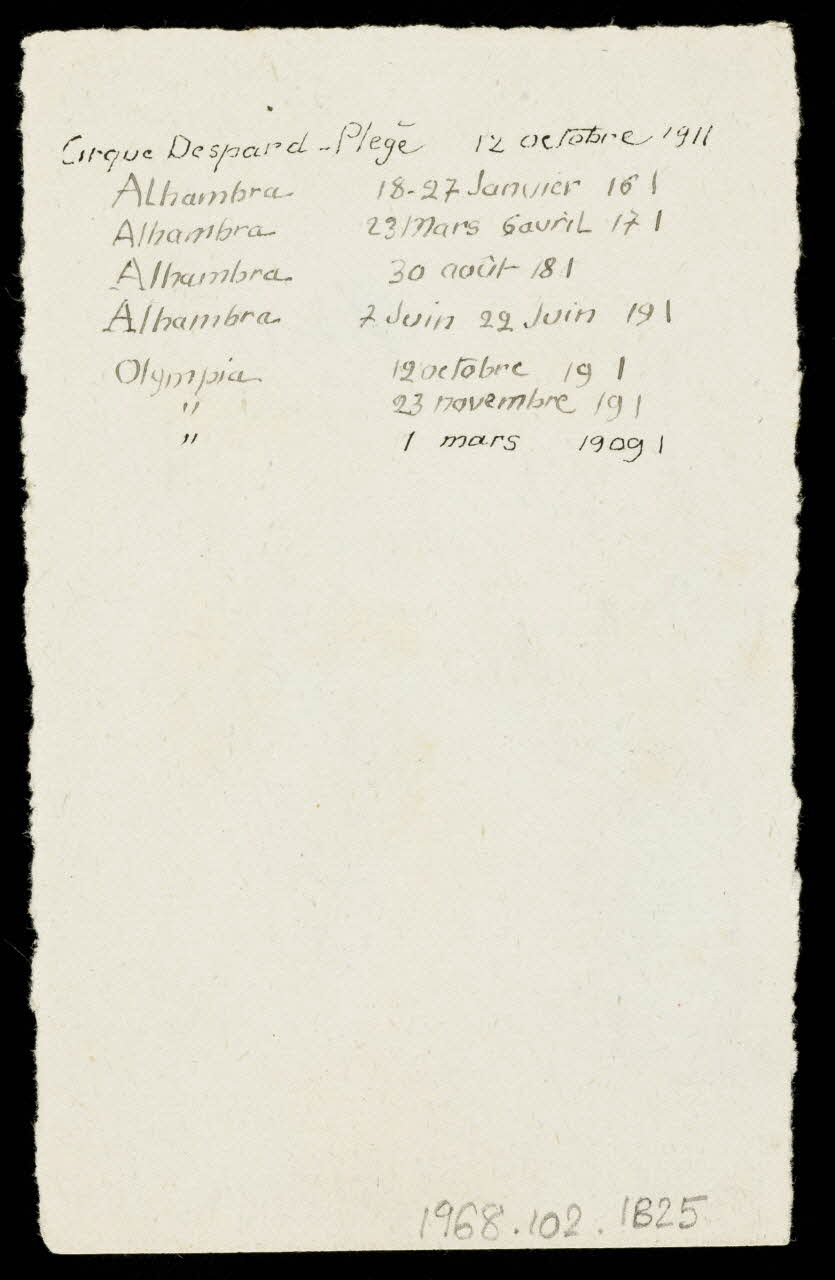 Cirque Despard-Plegē 12 octobre 1911
Alhambra 18-27 Janvier 16 1
Alhambra 23 Mars 6 avril 17 1
Alhambra 30 août 18 1
Alhambra 7 Juin 22 Juin 19 1
Olympia 12 octobre 19 1
" 23 novembre 19 1
" 1 mars 1909 1
1968.102.1B25